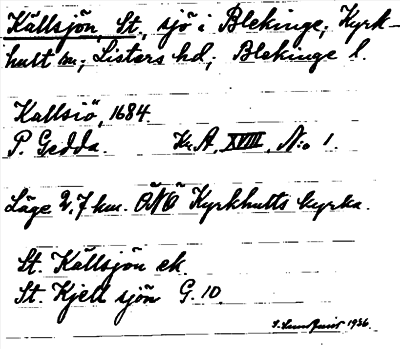 Källsjön, St., sjö i Blekinge; Kyrk-
hult sn; Listers hd; Blekinge l.
Kallsiö, 1684.
P. Gedda. Kr.A. XVIII. N:o 1.
Läge 2,7 km. ÖNÖ Kyrkhults kyrka.
St. Källsjön ek.
St. Kjell sjön G. 10
S. Lundquist 1936.